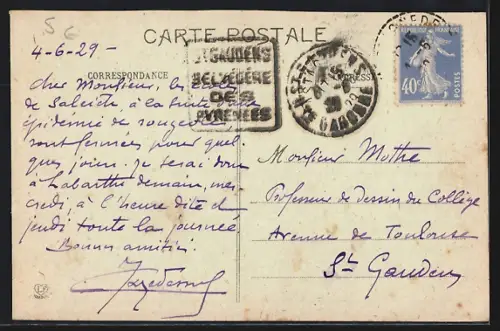 CARTE POSTALE
CORRESPONDANCE
ADRESSE
ST GAUDENS
BELVÉDÈRE
DES
PYRÉNÉES
GARONNE
40c
POSTES
4-6-29-
Cher Monsieur, les écoles
de Salech, à la suite d'une
épidémie de rougeole,
sont fermées pour quel
ques jours. Je serai donc
à Labarthe demain, mer
credi, à l'heure dite et
jeudi toute la journée.
Bonnes amitiés.
Monsieur Mothe
Professeur de Dessin du Collège
Avenue de Toulouse
St Gaudens